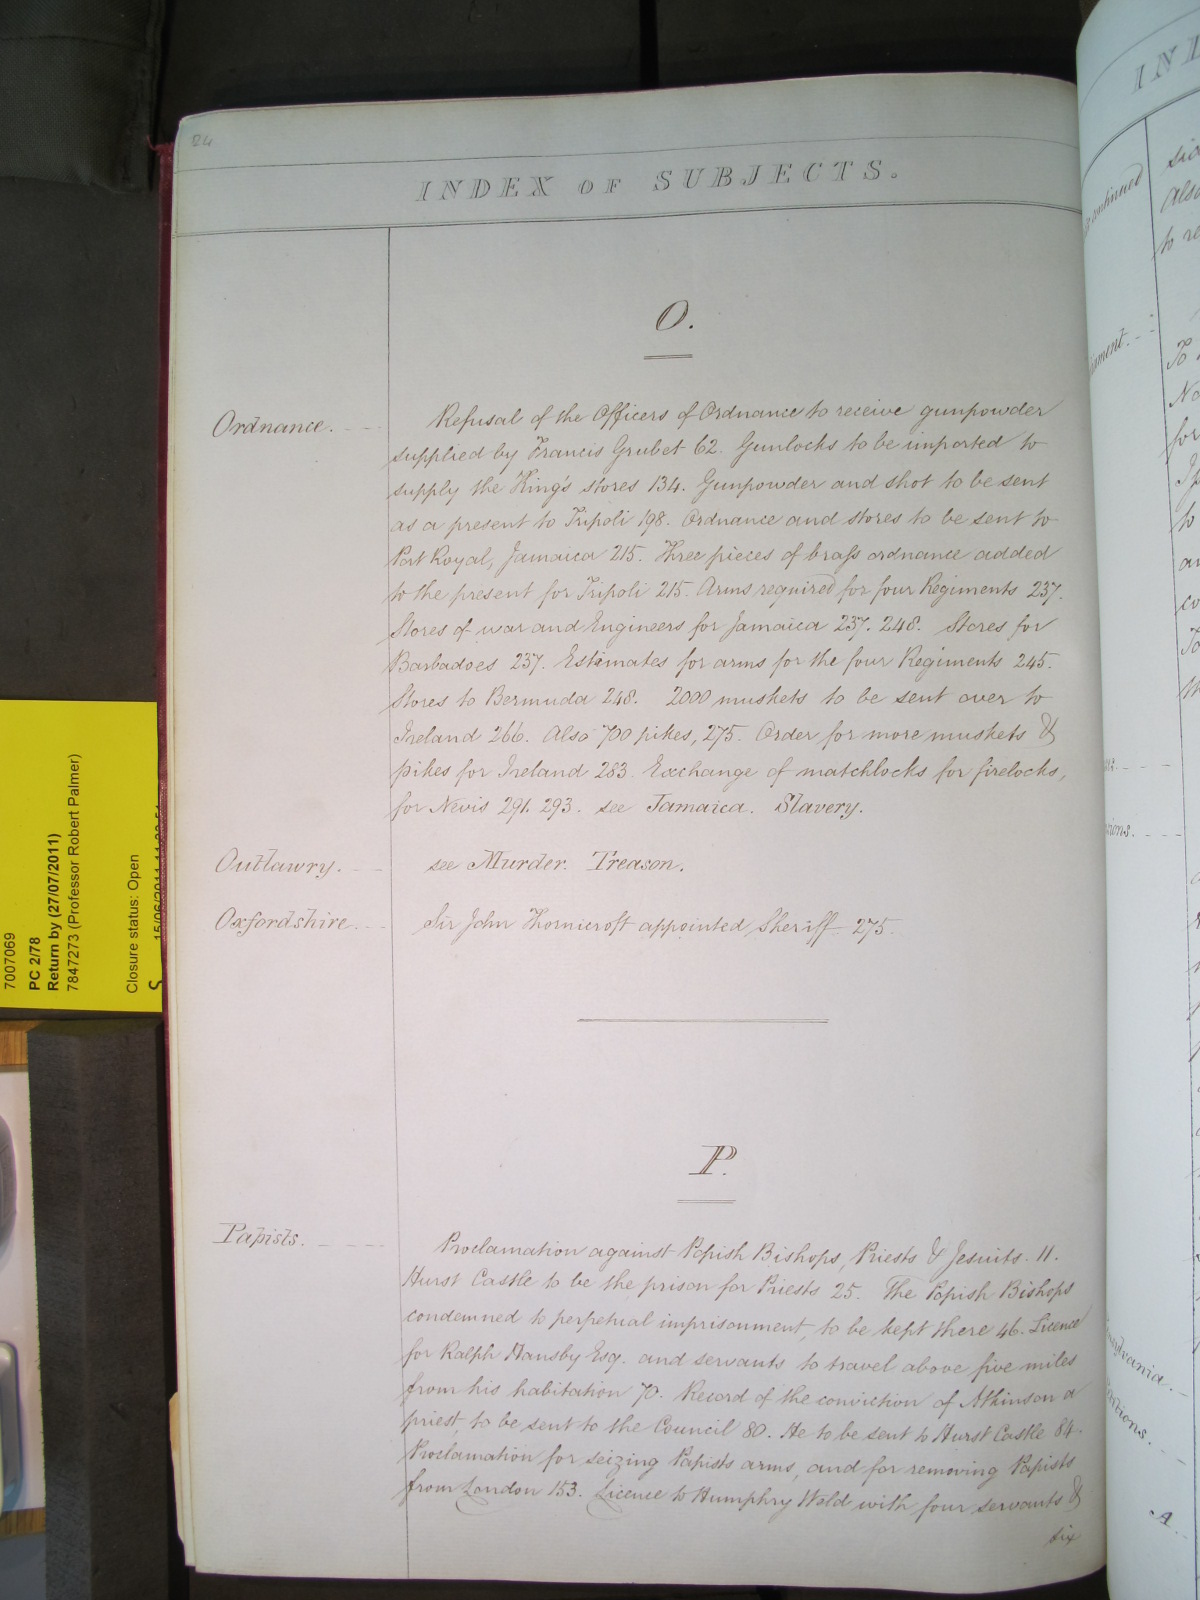 24
INDEX OF SUBJECTS.
O.
Ordnance. Refusal of the Officers of Ordnance to receive gunpowder
supplied by Francis Grubet 62. Gunlocks to be imported to
supply the King's stores 134. Gunpowder and shot to be sent
as a present to Tripoli 198. Ordnance and stores to be sent to
Port Royal, Jamaica 215. Three pieces of brass ordnance added
to the present for Tripoli 215. Arms required for four Regiments 237.
Stores of war and Engineers for Jamaica 237. 248. Stores for
Barbadoes 237. Estimates for arms for the four Regiments 245.
Stores to Bermuda 248. 2000 muskets to be sent over to
Ireland 266. Also 700 pikes, 275. Order for more muskets &
pikes for Ireland 283. Exchange of matchlocks for firelocks,
for Nevis 291. 293. see Jamaica. Slavery.
Outlawry. see Murder. Treason.
Oxfordshire. Sir John Thornicroft appointed Sheriff 275.
P.
Papists. Proclamation against Popish Bishops, Priests & Jesuits. 11.
Hurst Castle to be the prison for Priests 25. The Popish Bishops
condemned to perpetual imprisonment, to be kept there 46. Licence
for Ralph Hansby Esq. and servants to travel above five miles
from his habitation 70. Record of the conviction of Atkinson a
priest, to be sent to the Council 80. He to be sent to Hurst Castle 84.
Proclamation for seizing Papists arms, and for removing Papists
from London 153. Licence to Humphry Weld with four servants &
six
7007069
PC 2/78
Return by (27/07/2011)
7847273 (Professor Robert Palmer)
Closure status: Open
S
IND
continued
Also
To
No
for
to